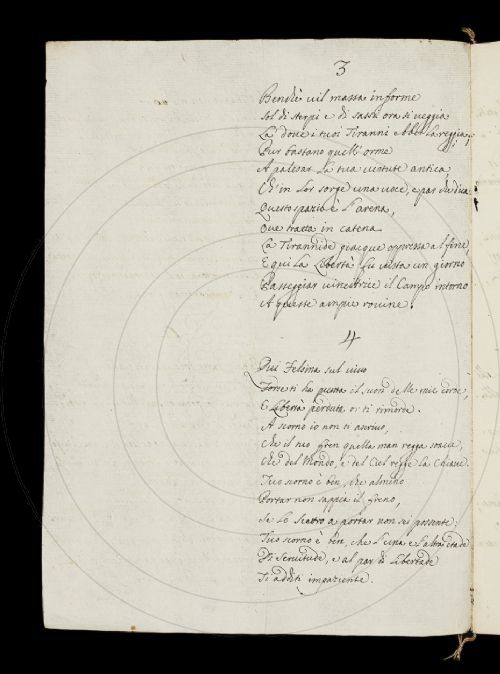 3
Benchè vil massa informe
Sol di sterpi e di sassi ora si veggia
Là dove i tuoi Tiranni ebber la reggia,
Pur bastano quell'orme
A palesar la tua virtute antica,
Ch'in lor sorge una voce, e par che dica:
Questo spazio è l'arena,
Ove tratta in catena
La Tirannide giacque oppressa al fine,
E qui la Libertà fu vista un giorno
Passeggiar vincitrice il Campo intorno
A queste ampie rovine.
4
Qui Felsina sul vivo
Forse ti ha punta il suon delle mie corde,
E Libertà perduta or ti rimorde.
A scorno io non ti ascrivo,
Che il tuo fren quella man regga soave,
Che del Mondo, e del Ciel regge la Chiave.
Tuo scorno è ben, che almeno
Portar non sappia il freno,
Se lo scettro a portar non sei possente:
Tuo scorno è ben, che l'una e l'altra etade
Di Servitude, e al par di Libertade
Ti additi impaziente.